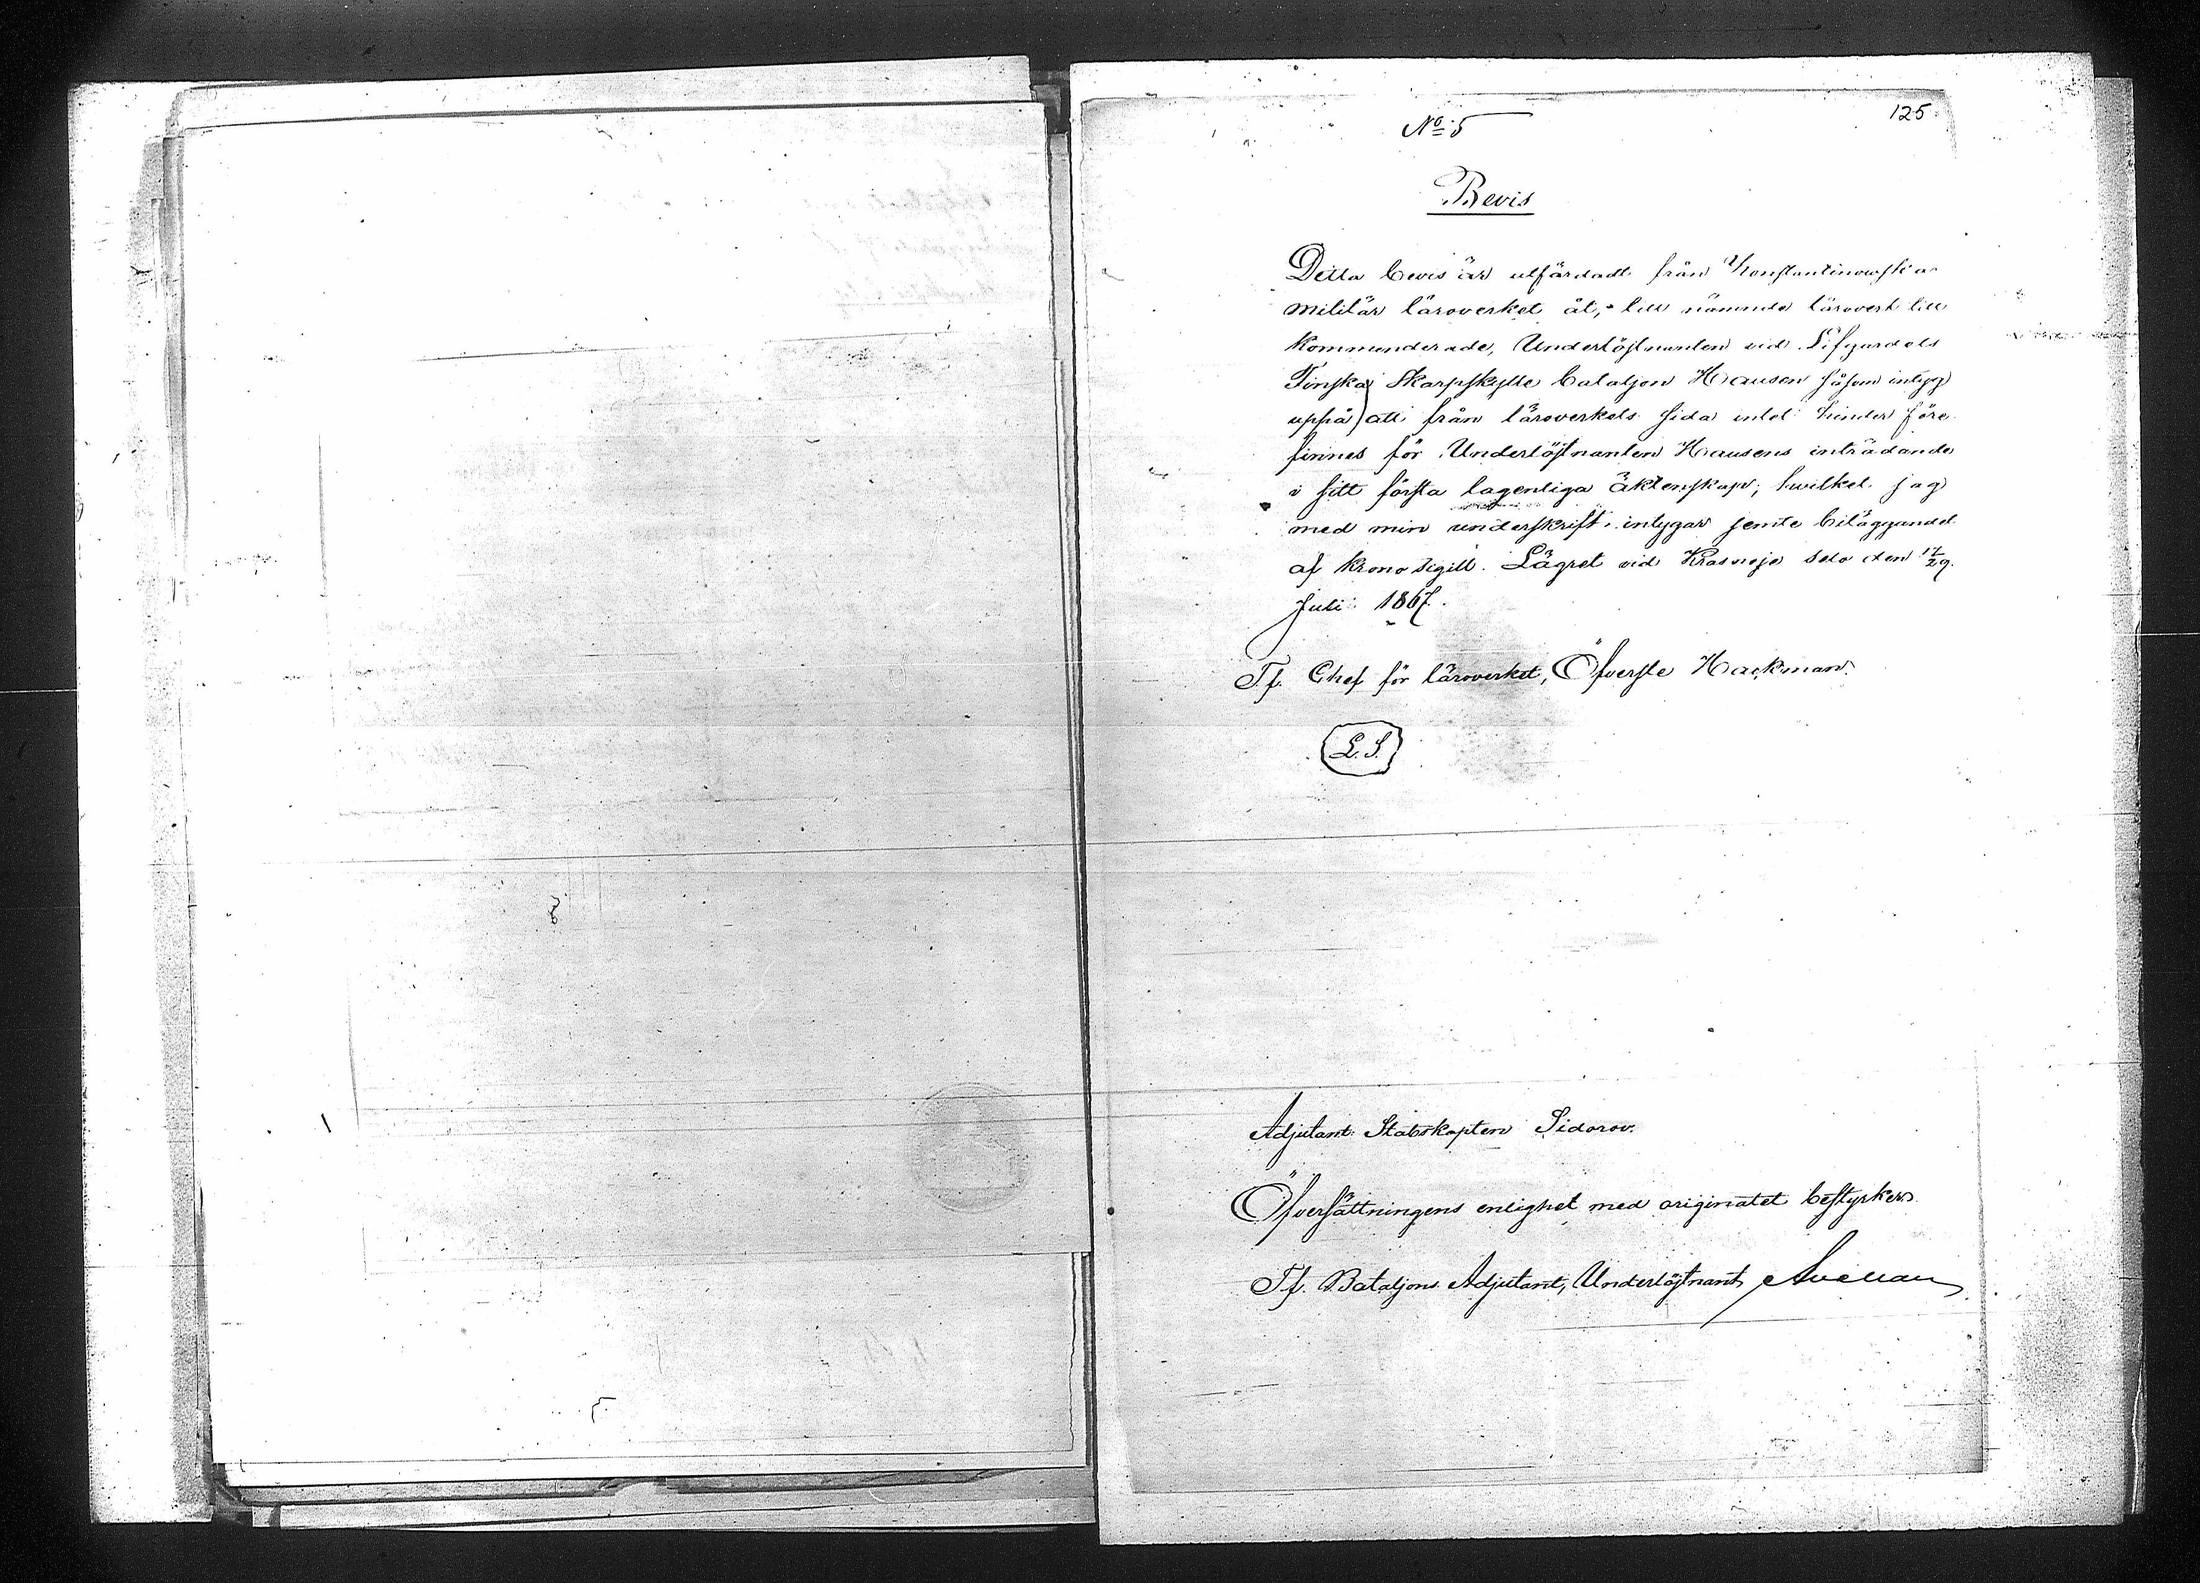 125
No 5
Bevis
Detta bevis är utfärdadt från Konstantinowska
militär läroverket åt, till nämnde läroverk till
kommenderade, Underlöjtnanten vid Lifgardets
Finska Skarpskytte bataljon Hausen såsom intyg
uppå att från läroverkets sida intet hinder före
finnes för Underlöjtnanten Hausens inträdande
i sitt första lagenliga äktenskap; hvilket jag
med min underskrift intygar jemte biläggandet
af krono sigill. Lägret vid Krasnoje Selo den 17/29
Juli 1867.
T.f. Chef för läroverket, Öfverste Hackman.
L.S.
Adjutant Stabskapten Sidorov.
Öfversättningens enlighet med originalet bestyrker
T.f. Bataljons Adjutant, Underlöjtnant Avellan